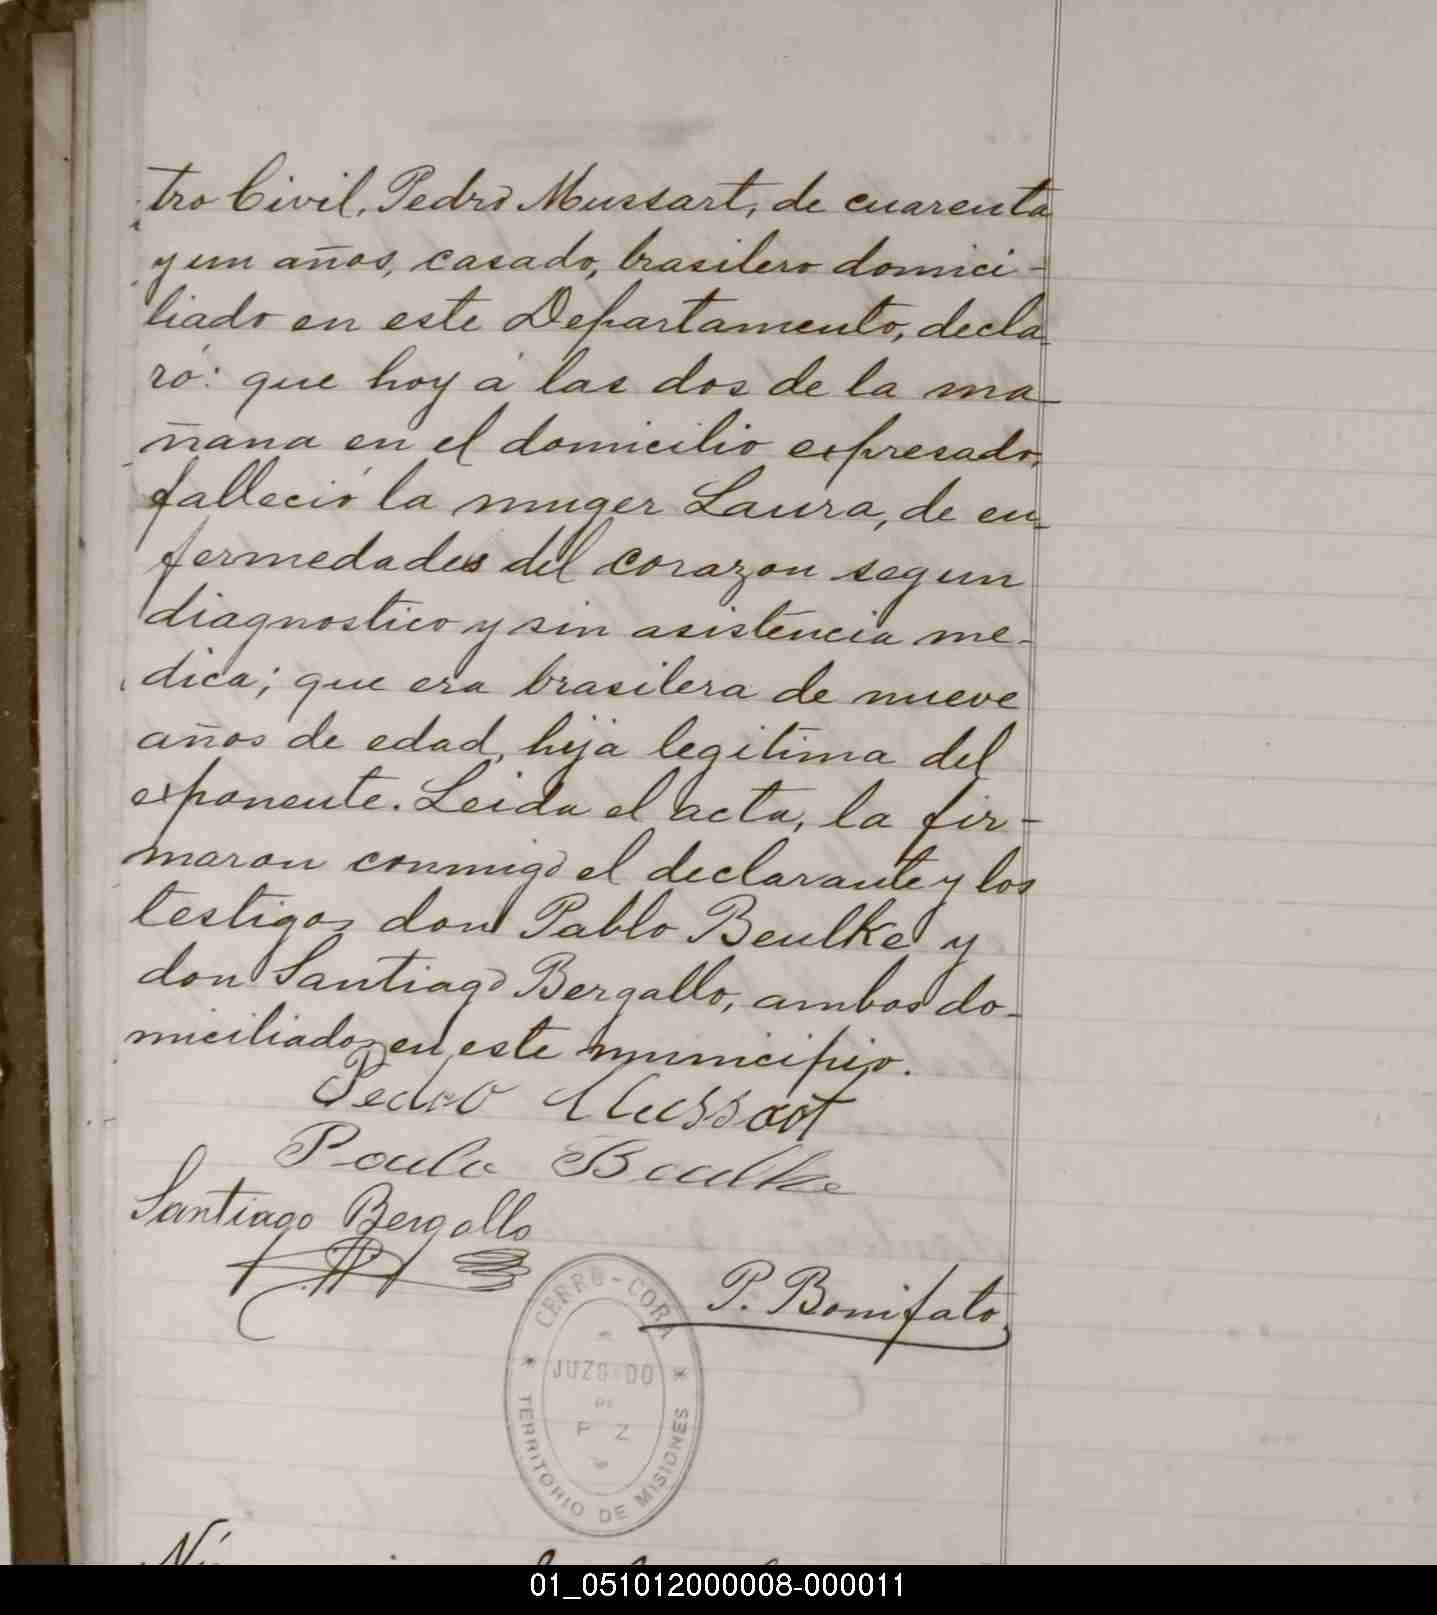 tro Civil, Pedro Mussart, de cuarenta
y un años, casado, brasilero domici-
liado en este Departamento, decla-
ró: que hoy á las dos de la ma-
ñana en el domicilio expresado,
falleció la muger Laura, de en-
fermedades del corazon segun
diagnostico y sin asistencia me-
dica; que era brasilera de nueve
años de edad, hija legitima del
exponente. Leida el acta, la fir-
maron conmigo el declarante y los
testigos don Pablo Beulke y
don Santiago Bergallo, ambos do-
miciliados en este municipio.
Pedro Mussart
Paulo Beulke
Santiago Bergallo
P. Bonifato
CERRO-CORA
JUZGADO
DE
P Z
TERRITORIO DE MISIONES
01_051012000008-000011